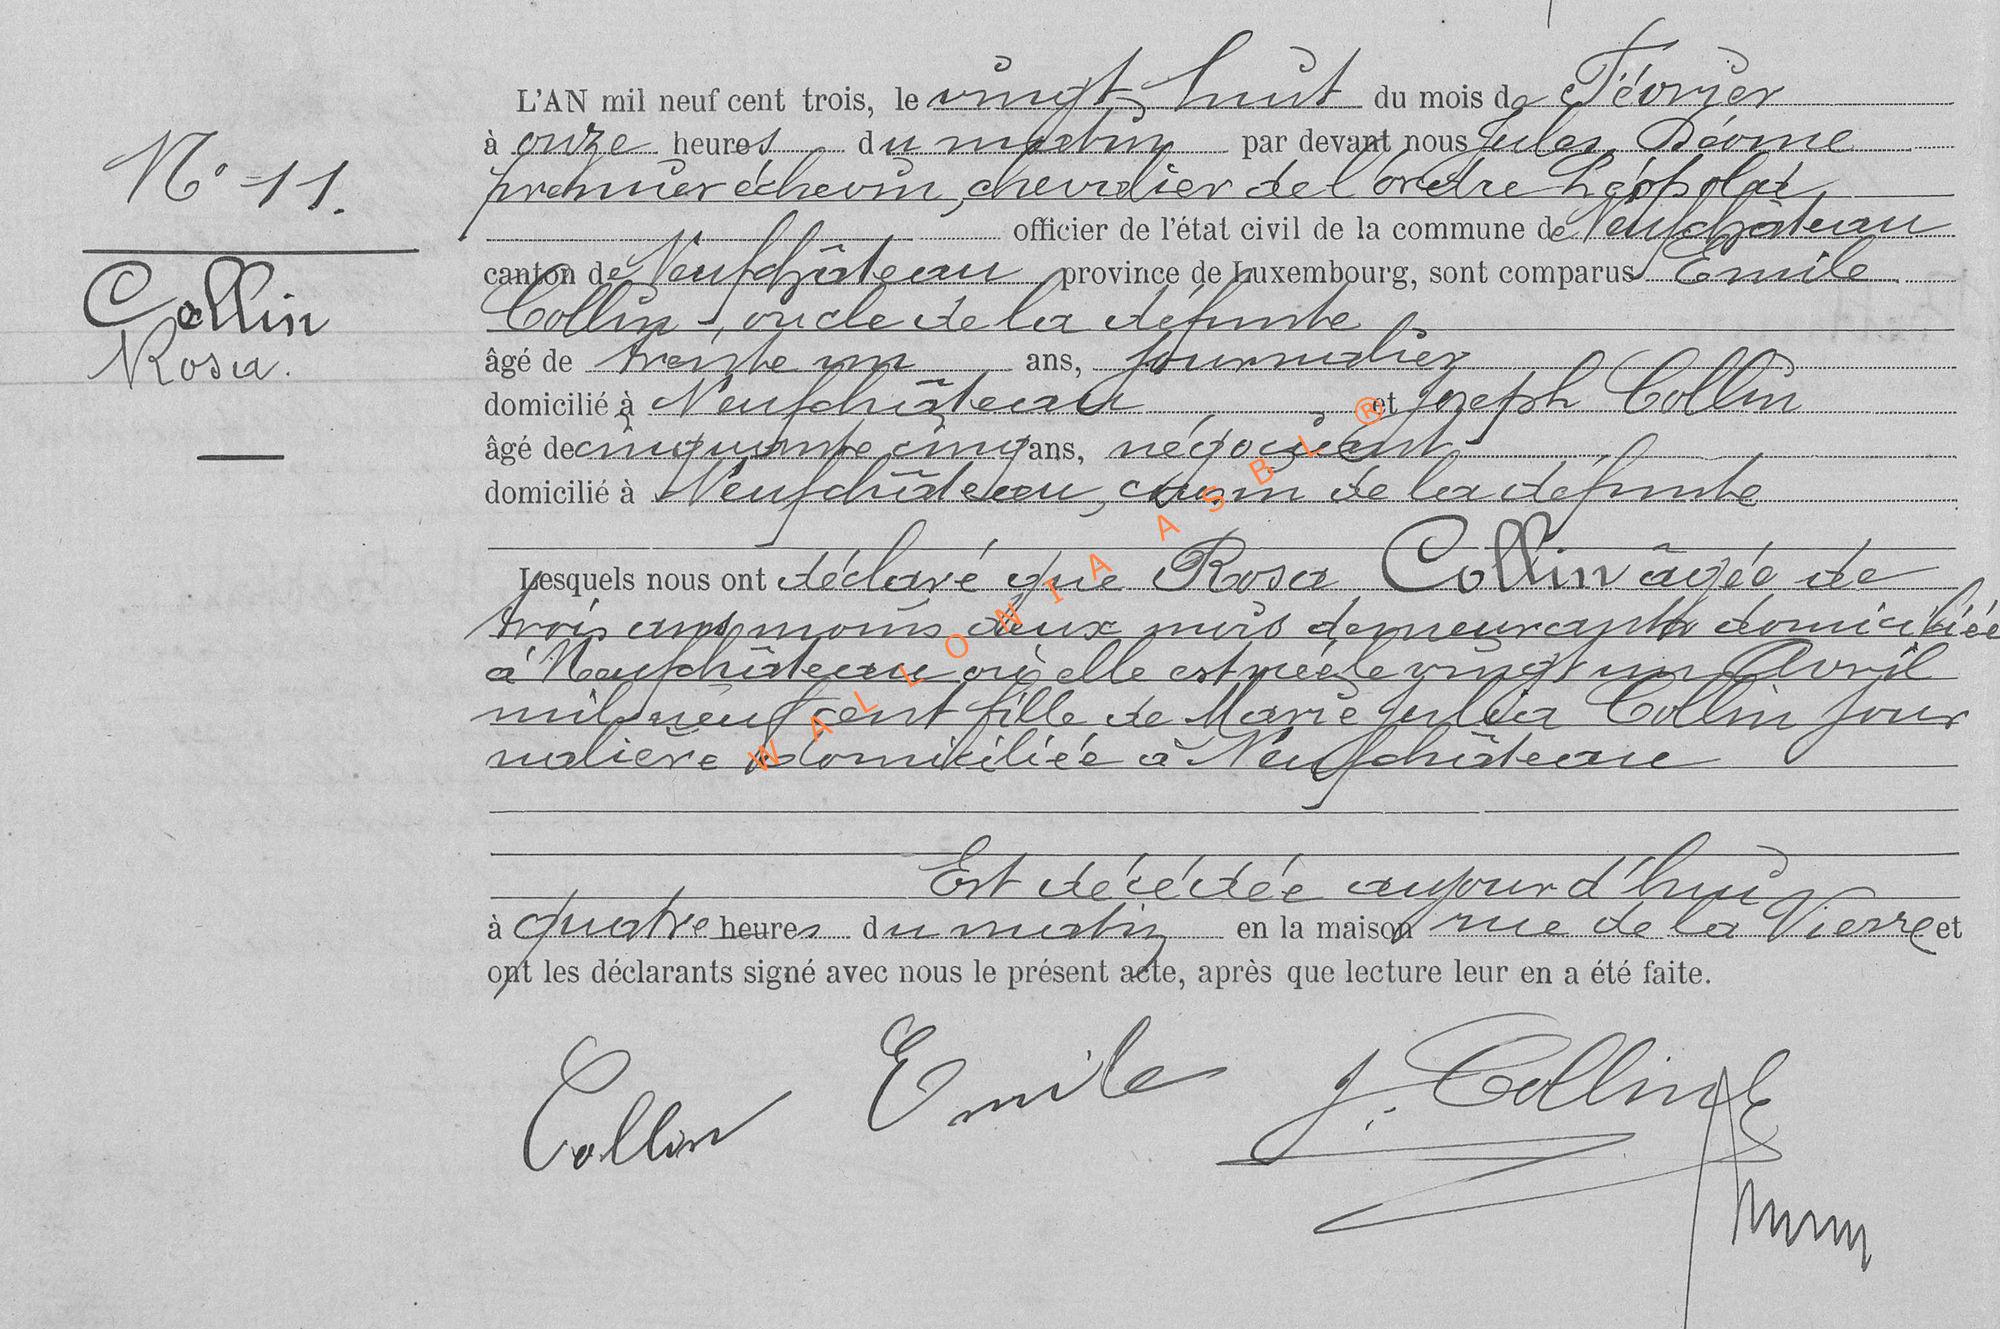 L'AN mil neuf cent trois, le vingt huit du mois de Février
à onze heures du matin par devant nous Jules Déome
premier échevin, chevalier de l'ordre Léopold,
officier de l'état civil de la commune de Neufchâteau
canton de Neufchâteau province de Luxembourg, sont comparus Emile
Collin, oncle de la défunte
âgé de trente un ans, journalier
domicilié à Neufchâteau et Joseph Collin
âgé de cinquante cinq ans, négociant
domicilié à Neufchâteau, cousin de la défunte
N° 11.
Collin
Rosa.
Lesquels nous ont déclaré que Rosa Collin âgée de
trois ans moins deux mois demeurant domiciliée
à Neufchâteau où elle est née le vingt un Avril
mil neuf cent fille de Marie Julia Collin jour
nalière domiciliée à Neufchâteau
Est décédée aujourd'hui
à quatre heures du matin en la maison rue de la Vierre et
ont les déclarants signé avec nous le présent acte, après que lecture leur en a été faite.
Collin Emile J. Collin
WALLONIA ASBL ®